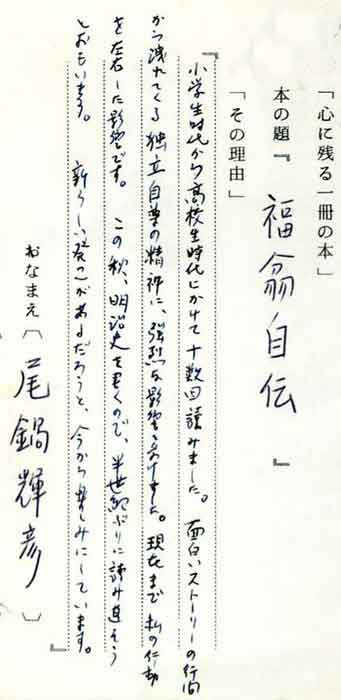 「心に残る一冊の本」
本の題『 福翁自伝 』
「その理由」
『小学生時代から高校生時代にかけて十数回読みました。 面白いストーリーの行間
から洩れてくる独立自尊の精神に、強烈な影響を受けました。現在まで私の行動
を左右した影響です。 この秋、明治史を書くので、半世紀ぶりに読み直そう
とおもいます。 新らしい発見があるだろうと、今から楽しみにしています。』
おなまえ〔 尾鍋輝彦 〕